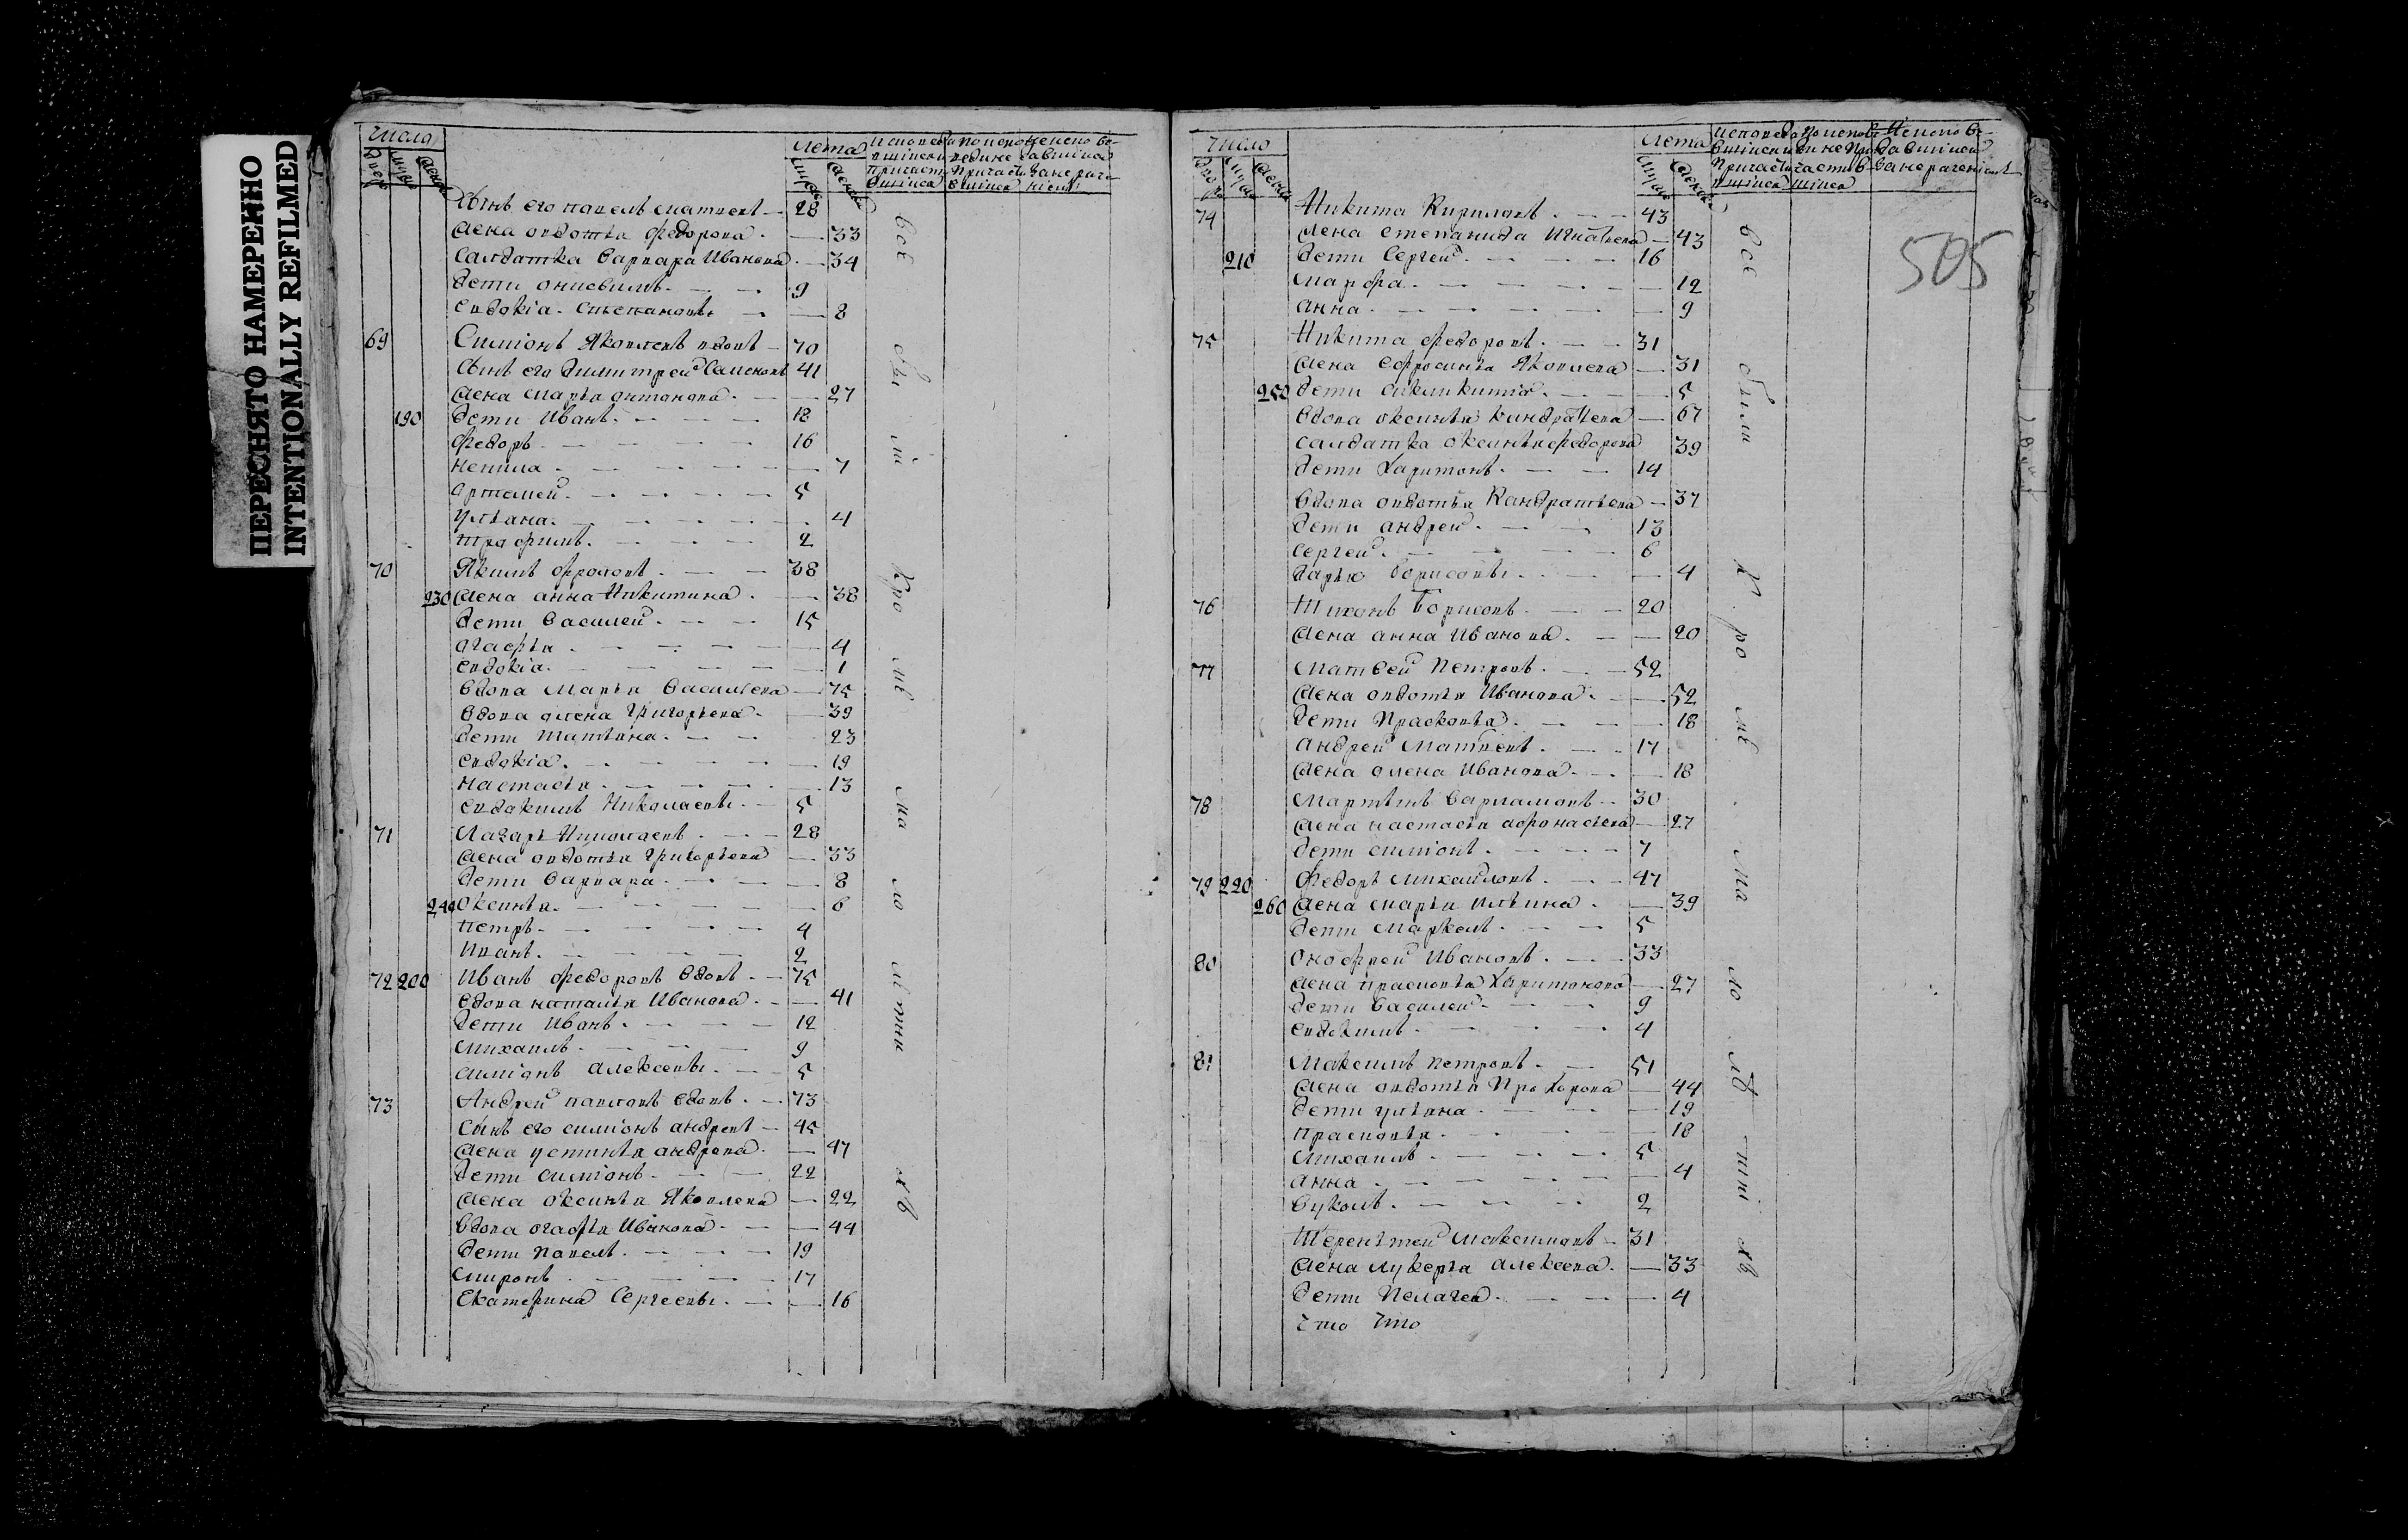 ПЕРЕСНЯТО НАМЕРЕННО
INTENTIONALLY REFILMED
Число
Лета
сынъ его павелъ матвеевъ 28
жена овдотья федорова 33
салдатка варвара Иванова 34
дети онисимъ 9
евдокіа степановы 8
69 Симіонъ Яковлевъ вдовъ 70
сынъ его димитрей Симіоновъ 41
жена марья антонова 27
190 дети Иванъ 18
федоръ 16
ненила 7
артамей 5
ульяна 4
трафимъ 2
70 Якимъ фроловъ 38
230 жена анна Никитина 38
дети василей 15
агафья 4
евдокіа 1
вдова марья васильева 75
вдова олена григорьева 39
дети татьяна 23
евдокіа 19
настасья 13
евдокимъ Николаевы 5
71 Лазарь Николаевъ 28
жена овдотья григорьева 33
дети варвара 8
240 оксинья 6
петръ 4
иванъ 2
72 200 Иванъ федоровъ вдовъ 75
вдова наталья Иванова 41
дети Иванъ 12
михаилъ 9
симіонъ алексеевы 5
73 Андрей павловъ вдовъ 73
сынъ его симіонъ андреевъ 45
жена устинья андреева 47
дети симіонъ 22
жена оксинья Яковлева 22
вдова огафья Иванова 44
дети павелъ 19
миронъ 17
Екатерина Сергеевы 16
все
кроме
мало
летних
505
Число
Лета
74 Никита Кириловъ 43
жена степанида Игнатьева 43
210 дети Сергей 16
марфа 12
анна 9
75 Никита федоровъ 31
жена ефросинья Яковлева 31
250 дети 5
вдова оксинья Кандратьева 67
салдатка оксинья федорова 39
дети Харитонъ 14
вдова овдотья Кандратьева 37
дети андрей 13
Сергей 6
дарья борисовы 4
76 Тихонъ Борисовъ 20
жена анна Иванова 20
77 Матвей Петровъ 52
жена овдотья Иванова 52
дети Прасковья 18
андрей матвеевъ 17
жена олена Иванова 18
78 Мартынъ варламовъ 30
жена настасья афонасьева 27
дети симіонъ 7
79 220 федоръ михайловъ 47
260 жена марья ильина 39
дети маркелъ 5
80 Онофрей Ивановъ 33
жена прасковья Харитонова 27
дети василей 9
евдокимъ 4
81 Максимъ петровъ 51
жена овдотья Прохорова 44
дети ульяна 19
прасковья 18
михаилъ 5
анна 4
вуколъ 2
Терентей максимовъ 31
жена лукерья алексеева 33
дети Пелагея 4
все были кроме малолетних